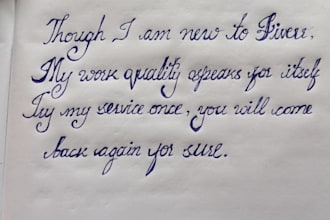 Though I am new to Fiverr,
My work quality speaks for itself
Try my service once, you will come
back again for sure.